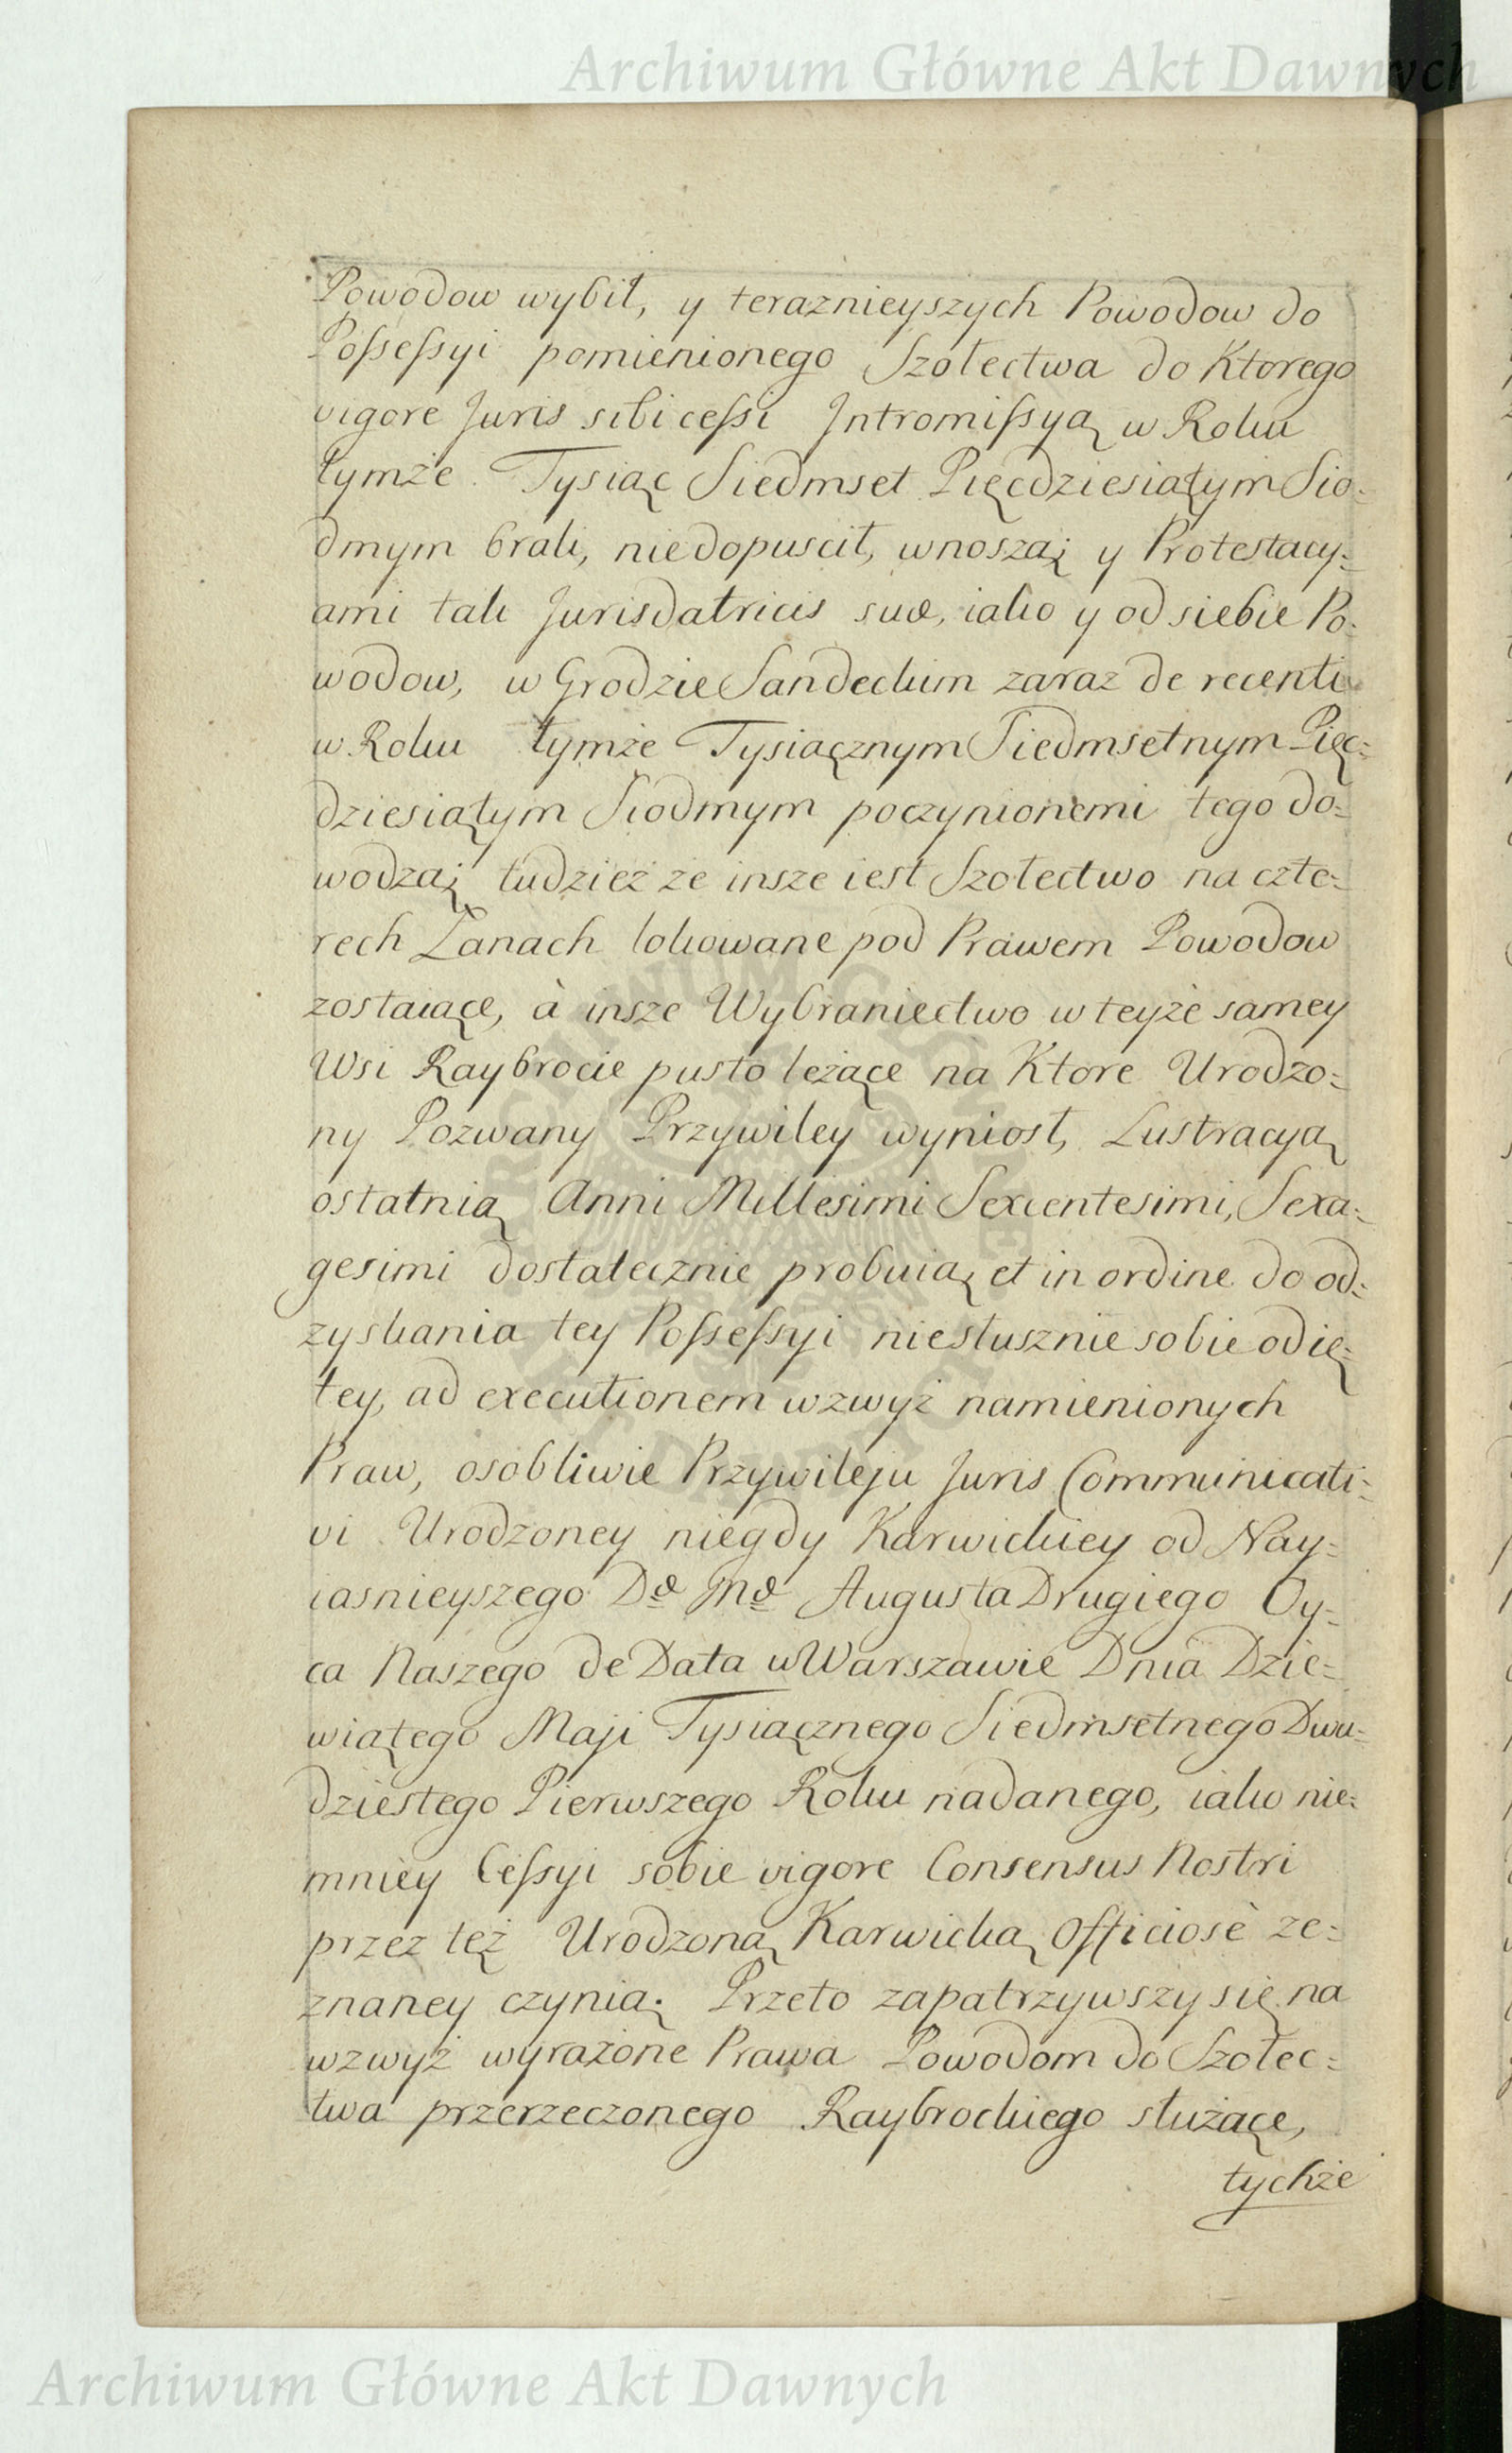 Archiwum Główne Akt Dawnych
Powodow wybił, y teraznieyszych Powodow do
Poſseſsyi pomienionego Szołectwa do Ktorego
vigore Juris sibi ceſsi Jntromiſsyą w Roku
tymże Tysiąc Siedmset Pięcdziesiątym Sio=
dmym brali, niedopuscił, wnoszą; y Protestacy=
ami tak Jurisdatricis suæ, iako y od siebie Po=
wodow, w Grodzie Sandeckim zaraz de recenti
w Roku tymże Tysiącznym Siedmsetnym Pięc=
dziesiątym Siodmym poczynionemi tego do=
wodzą; tudzież że insze iest Szołectwo na czte=
rech Łanach lokowane pod Prawem Powodow
zostaiące, à insze Wybraniectwo w teyże samey
Wsi Raybrocie pusto leżące na Ktore Urodzo=
ny Pozwany Przywiley wyniosł, Lustracyą
ostatnią Anni Millesimi Sexcentesimi, Sexa=
gesimi dostatecznie probuią, et in ordine do od=
zyskania tey Poſseſsyi niesłusznie sobie odię=
tey, ad executionem wzwyż namienionych
Praw, osobliwie Przywileju Juris Communicati=
vi Urodzoney niegdy Karwickiey od Nay=
iasnieyszego Dæ Mæ Augusta Drugiego Oy=
ca Naszego de Data w Warszawie Dnia Dzie=
wiątego Maji Tysiącznego Siedmsetnego Dwu=
dziestego Pierwszego Roku nadanego, iako nie=
mniey Ceſsyi sobie vigore Consensus Nostri
przez też Urodzoną Karwicką Officiosè ze=
znaney czynią. Przeto zapatrzywszy się na
wzwyż wyrażone Prawa Powodom do Szołec=
twa przerzeczonego Raybrockiego służące,
tychże
Archiwum Główne Akt Dawnych